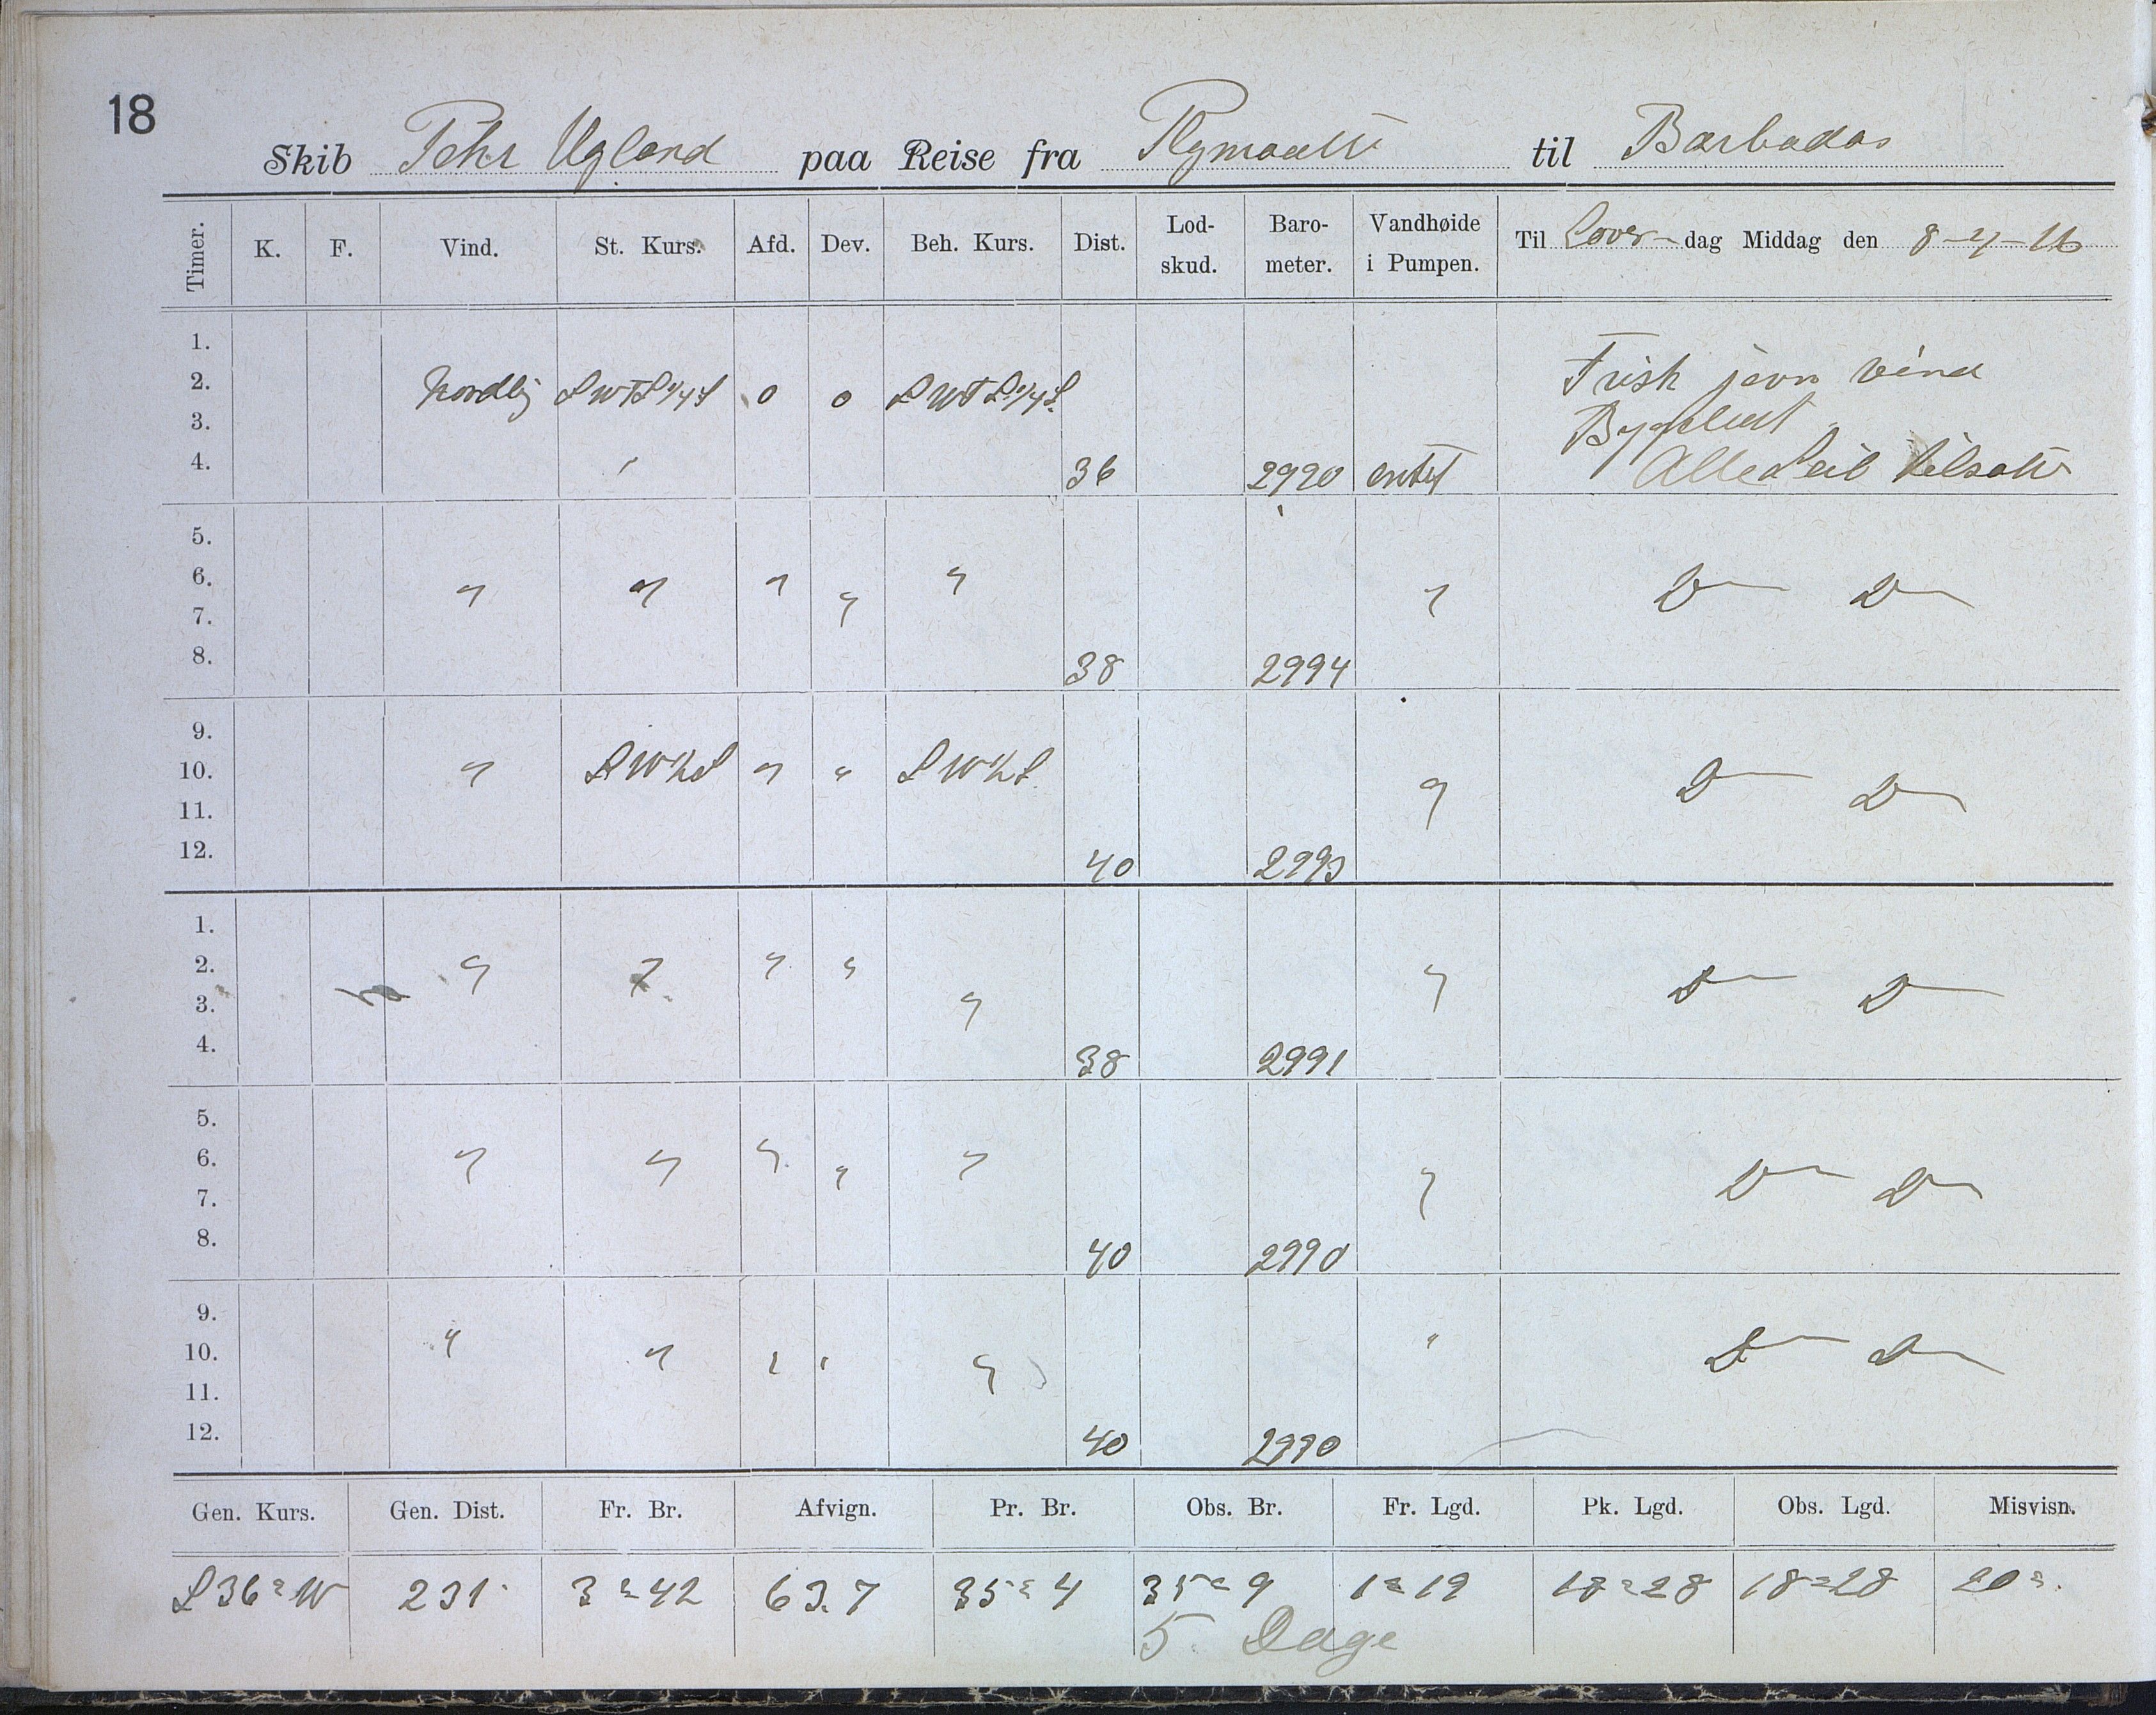 18
Skib Tehr Ugland paa Reise fra Plymouth til Barbados
Timer. K. F. Vind. St. Kurs. Afd. Dev. Beh. Kurs. Dist. Lod-skud. Baro-meter. Vandhøide i Pumpen. Til Löver-dag Middag den 8-4-16
1.
2. Nordlig SWTS 1/4 S 0 0 SWTS 1/4 S. Frisk jevn vind
3. Bygeluft
4. 36 2990 intet Alle Seil tilsatte
5.
6. " " " " " " D D
7.
8. 38 2994
9.
10. " SW1/2S " " SW1/2S. " D D
11.
12. 40 2993
1.
2. " " " " " " D D
3.
4. 38 2991
5.
6. " " " " " " D D
7.
8. 40 2990
9.
10. " " " " " " D D
11.
12. 40 2990
Gen. Kurs. Gen. Dist. Fr. Br. Afvign. Pr. Br. Obs. Br. Fr. Lgd. Pk. Lgd. Obs. Lgd. Misvisn.
S36°W 231 3°42 63.7 35°4 35°9 1°19 18°28 18°28 20°
5 Dage